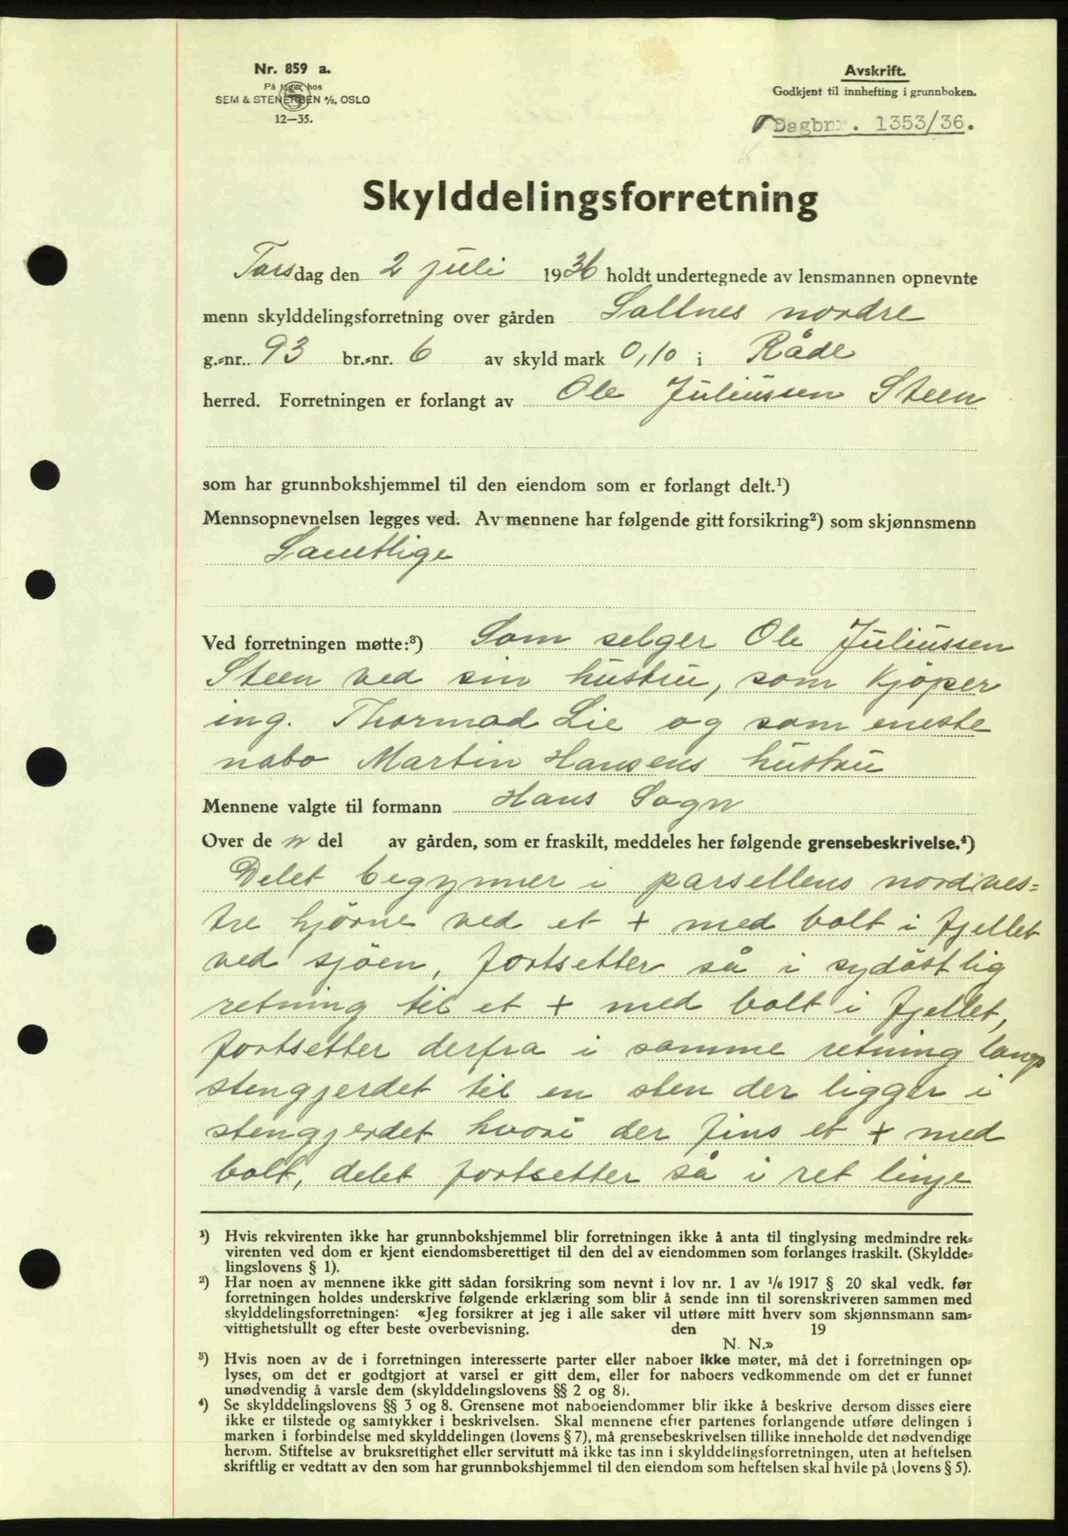 Nr. 859 a.
På lager hos
SEM & STENERSEN A/S, OSLO
12—35.
Avskrift.
Godkjent til innhefting i grunnboken.
Dagbnr. 1353/36.
Skylddelingsforretning
Torsdag den 2 juli 1936 holdt undertegnede av lensmannen opnevnte
menn skylddelingsforretning over gården Saltnes nordre
g.-nr. 93 br.-nr. 6 av skyld mark 0,10 i Råde
herred. Forretningen er forlangt av Ole Juliussen Steen
som har grunnbokshjemmel til den eiendom som er forlangt delt.¹)
Mennsopnevnelsen legges ved. Av mennene har følgende gitt forsikring²) som skjønnsmenn
Samtlige
Ved forretningen møtte:³) Som selger Ole Juliussen
Steen ved sin hustru, som kjøper
ing. Thormod Lie og som eneste
nabo Martin Hansens hustru
Mennene valgte til formann Hans Sogn
Over de n del av gården, som er fraskilt, meddeles her følgende grensebeskrivelse.⁴)
Delet begynner i parsellens nordves-
tre hjørne ved et + med bolt i fjellet
ved sjöen, fortsetter så i sydöstlig
retning til et + med bolt i fjellet,
fortsetter derfra i samme retning langs
stengjerdet til en sten der ligger i
stengjerdet hvori der fins et + med
bolt, delet fortsetter så i ret linje
¹) Hvis rekvirenten ikke har grunnbokshjemmel blir forretningen ikke å anta til tinglysing medmindre rek-
virenten ved dom er kjent eiendomsberettiget til den del av eiendommen som forlanges fraskilt. (Skyldde-
lingslovens § 1).
²) Har noen av mennene ikke gitt sådan forsikring som nevnt i lov nr. 1 av 1/6 1917 § 20 skal vedk. før
forretningen holdes underskrive følgende erklæring som blir å sende inn til sorenskriveren sammen med
skylddelingsforretningen: «Jeg forsikrer at jeg i alle saker vil utføre mitt hverv som skjønnsmann sam-
vittighetsfullt og efter beste overbevisning. den 19
N. N.»
³) Hvis noen av de i forretningen interesserte parter eller naboer ikke møter, må det i forretningen op-
lyses, om det er godtgjort at varsel er gitt dem, eller for naboers vedkommende om det er funnet
unødvendig å varsle dem (skylddelingslovens §§ 2 og 8).
⁴) Se skylddelingslovens §§ 3 og 8. Grensene mot naboeiendommer blir ikke å beskrive dersom disses eiere
ikke er tilstede og samtykker i beskrivelsen. Skal mennene efter partenes forlangende utføre delingen i
marken i forbindelse med skylddelingen (lovens § 7), må grensebeskrivelsen tillike inneholde det nødvendige
herom. Stiftelse av bruksrettighet eller servitutt må ikke tas inn i skylddelingsforretningen, uten at heftelsen
skriftlig er vedtatt av den som har grunnbokshjemmel til den eiendom som heftelsen skal hvile på (lovens § 5).